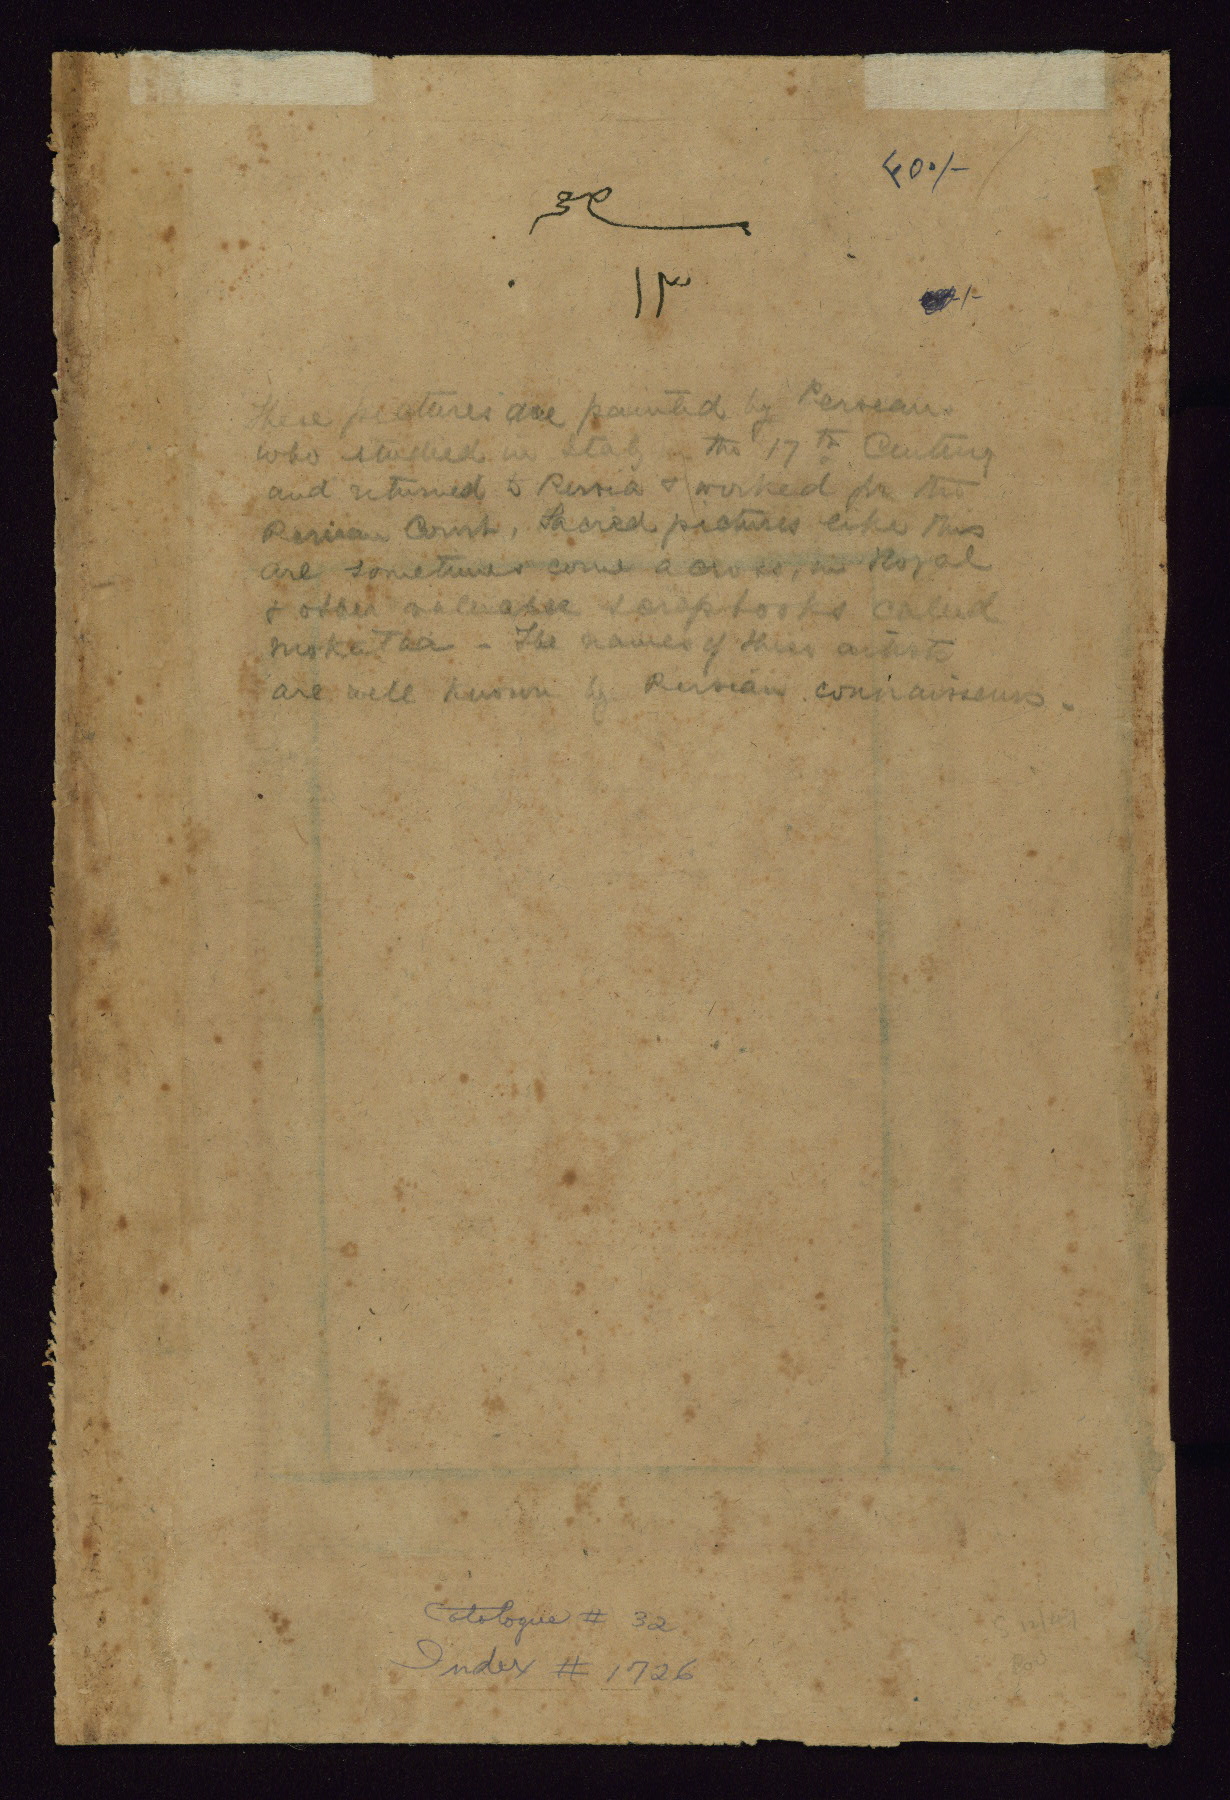 ۱۳
These pictures are painted by Persians
who studied in Italy in the 17th Century
and returned to Persia & worked for the
Persian Court, Sacred pictures like this
are sometimes come across, in Royal
& other valuable scrapbooks called
The names of these artists
are well known by Persian connaisseurs.
Catalogue # 32
Index # 1726